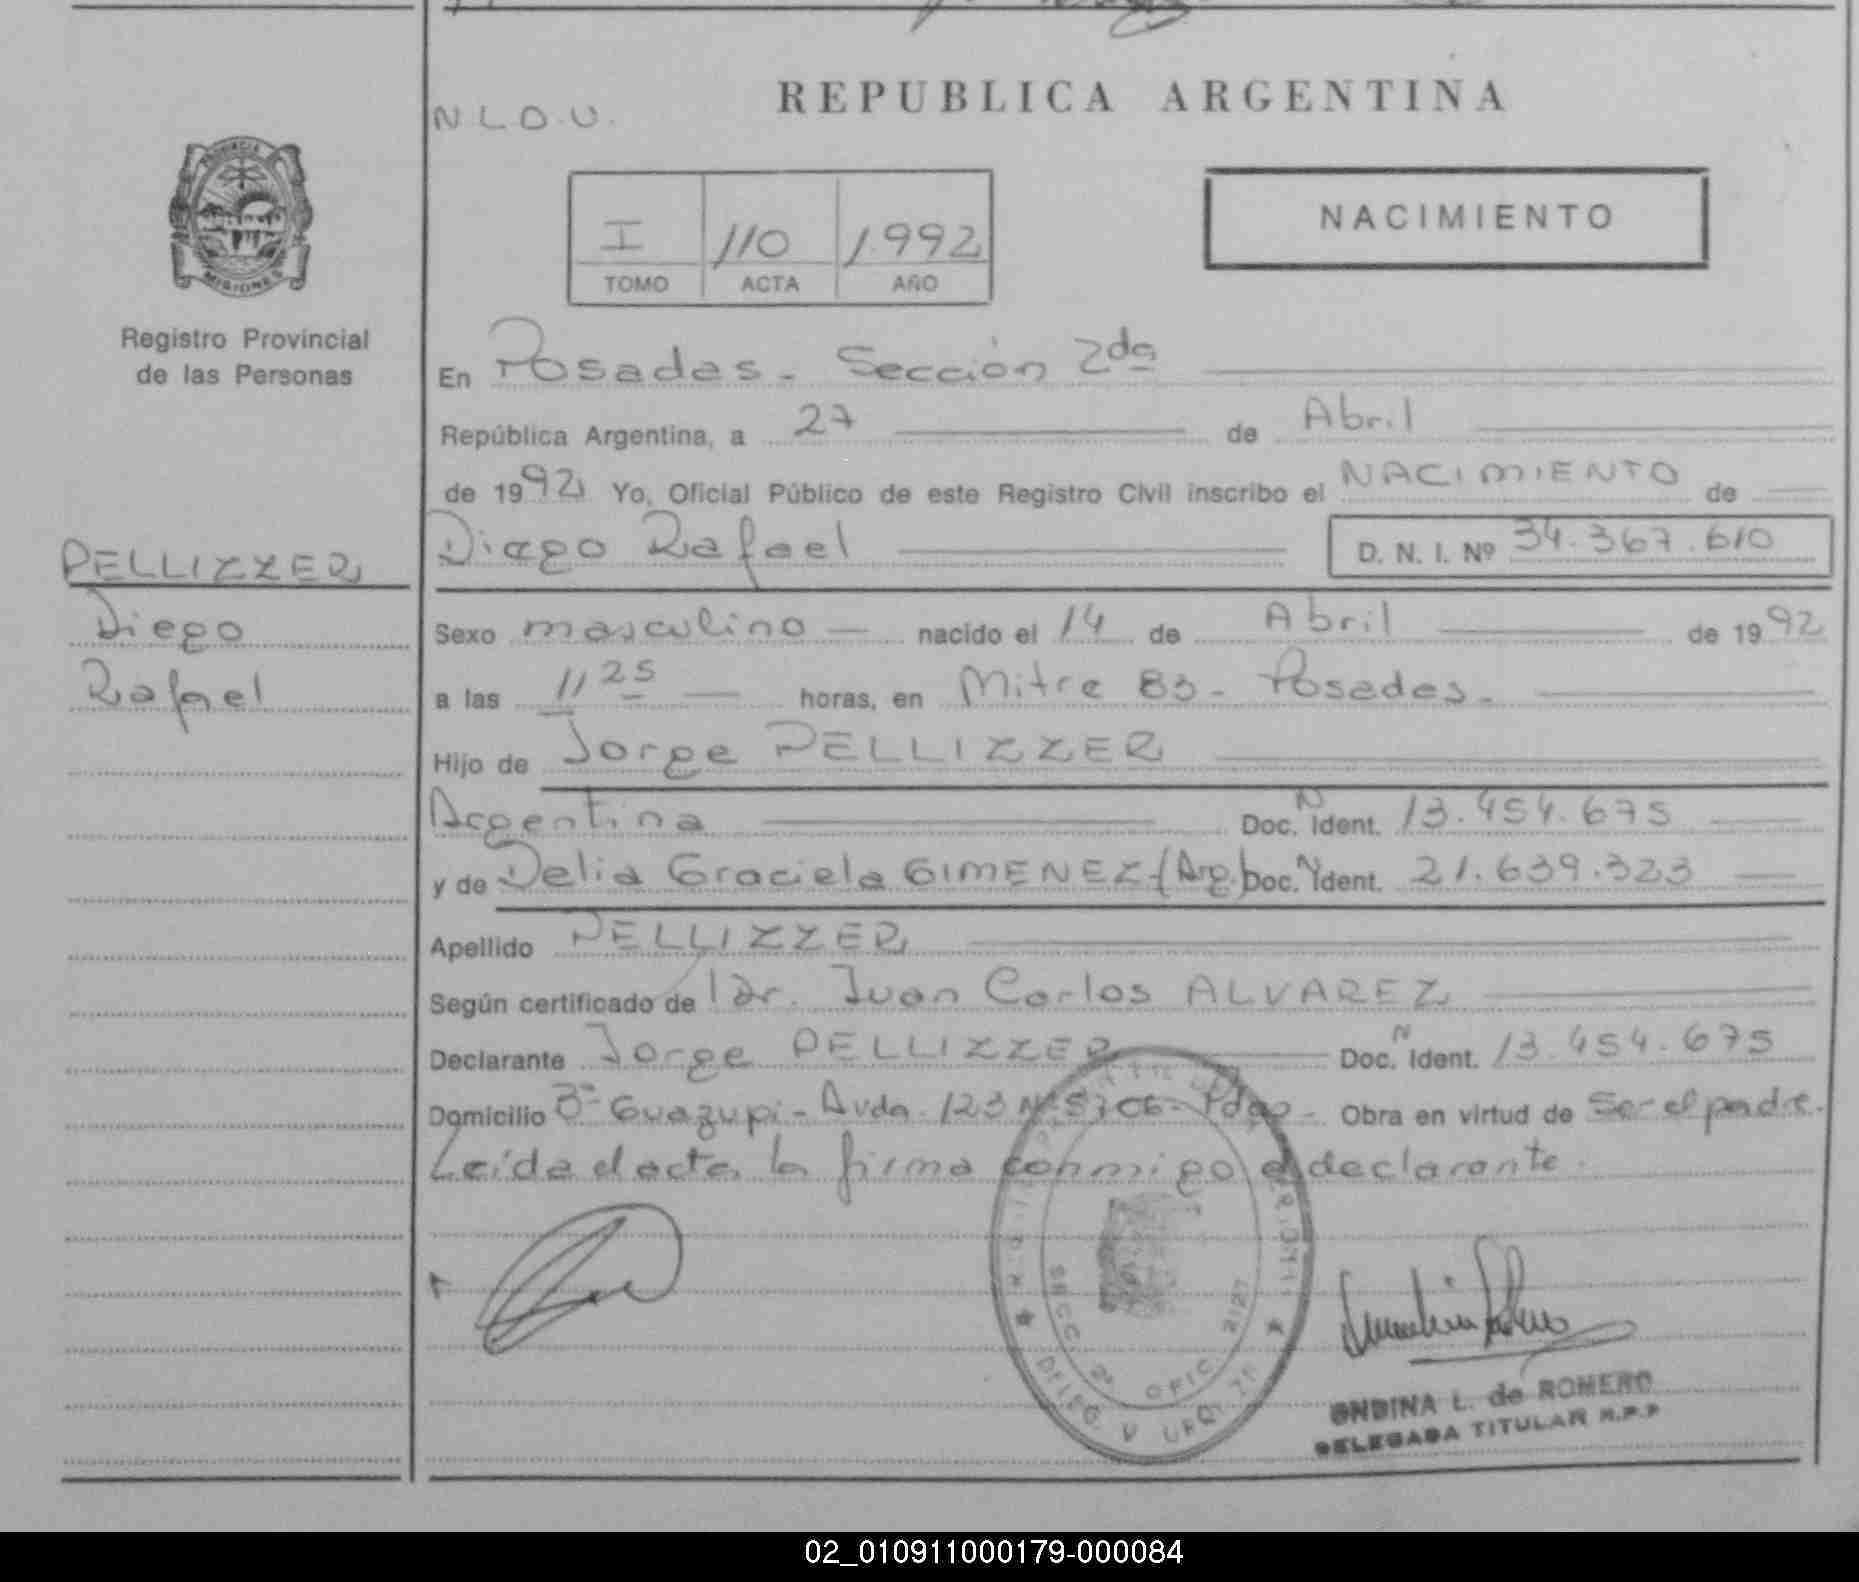 REPUBLICA ARGENTINA
N.L.D.U.
PROVINCIA
MISIONES
Registro Provincial
de las Personas
I 110 1.992
TOMO ACTA AÑO
NACIMIENTO
En Posadas - Sección 2da
República Argentina, a 27 de Abril
de 1992 Yo, Oficial Público de este Registro Civil inscribo el NACIMIENTO de
Diego Rafael D. N. I. Nº 34.367.610
PELLIZZER
Diego
Rafael
Sexo masculino nacido el 14 de Abril de 1992
a las 11 25 horas, en Mitre 83 - Posadas -
Hijo de Jorge PELLIZZER
Argentina Doc. N Ident. 13.454.675
y de Delia Graciela GIMENEZ - (Arg.) Doc. N Ident. 21.639.323
Apellido PELLIZZER
Según certificado de Dr. Juan Carlos ALVAREZ
Declarante Jorge PELLIZZER Doc. N Ident. 13.454.675
Domicilio Bº Guazupi - Avda. 123 Nº 5706 - Pdas - Obra en virtud de Ser el padre.
Leída el acta, la firma conmigo el declarante.
SECC. 2ª OFIC. 2127
DELEG V URQ
ONDINA L. de ROMERO
DELEGADA TITULAR R.P.P
02_010911000179-000084